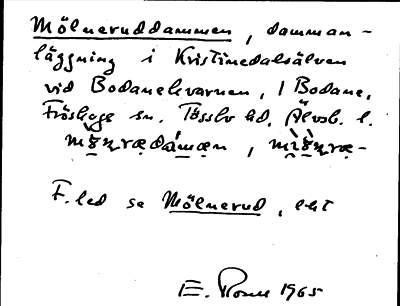 Mölneruddammen, damman-
läggning i Kristinedalsälven
vid Bodanekvarnen, 1 Bodane,
Fröskoge sn. Tössbo hd. Älvsb. l.
F.led se Mölnerud, ekt
E. 1965